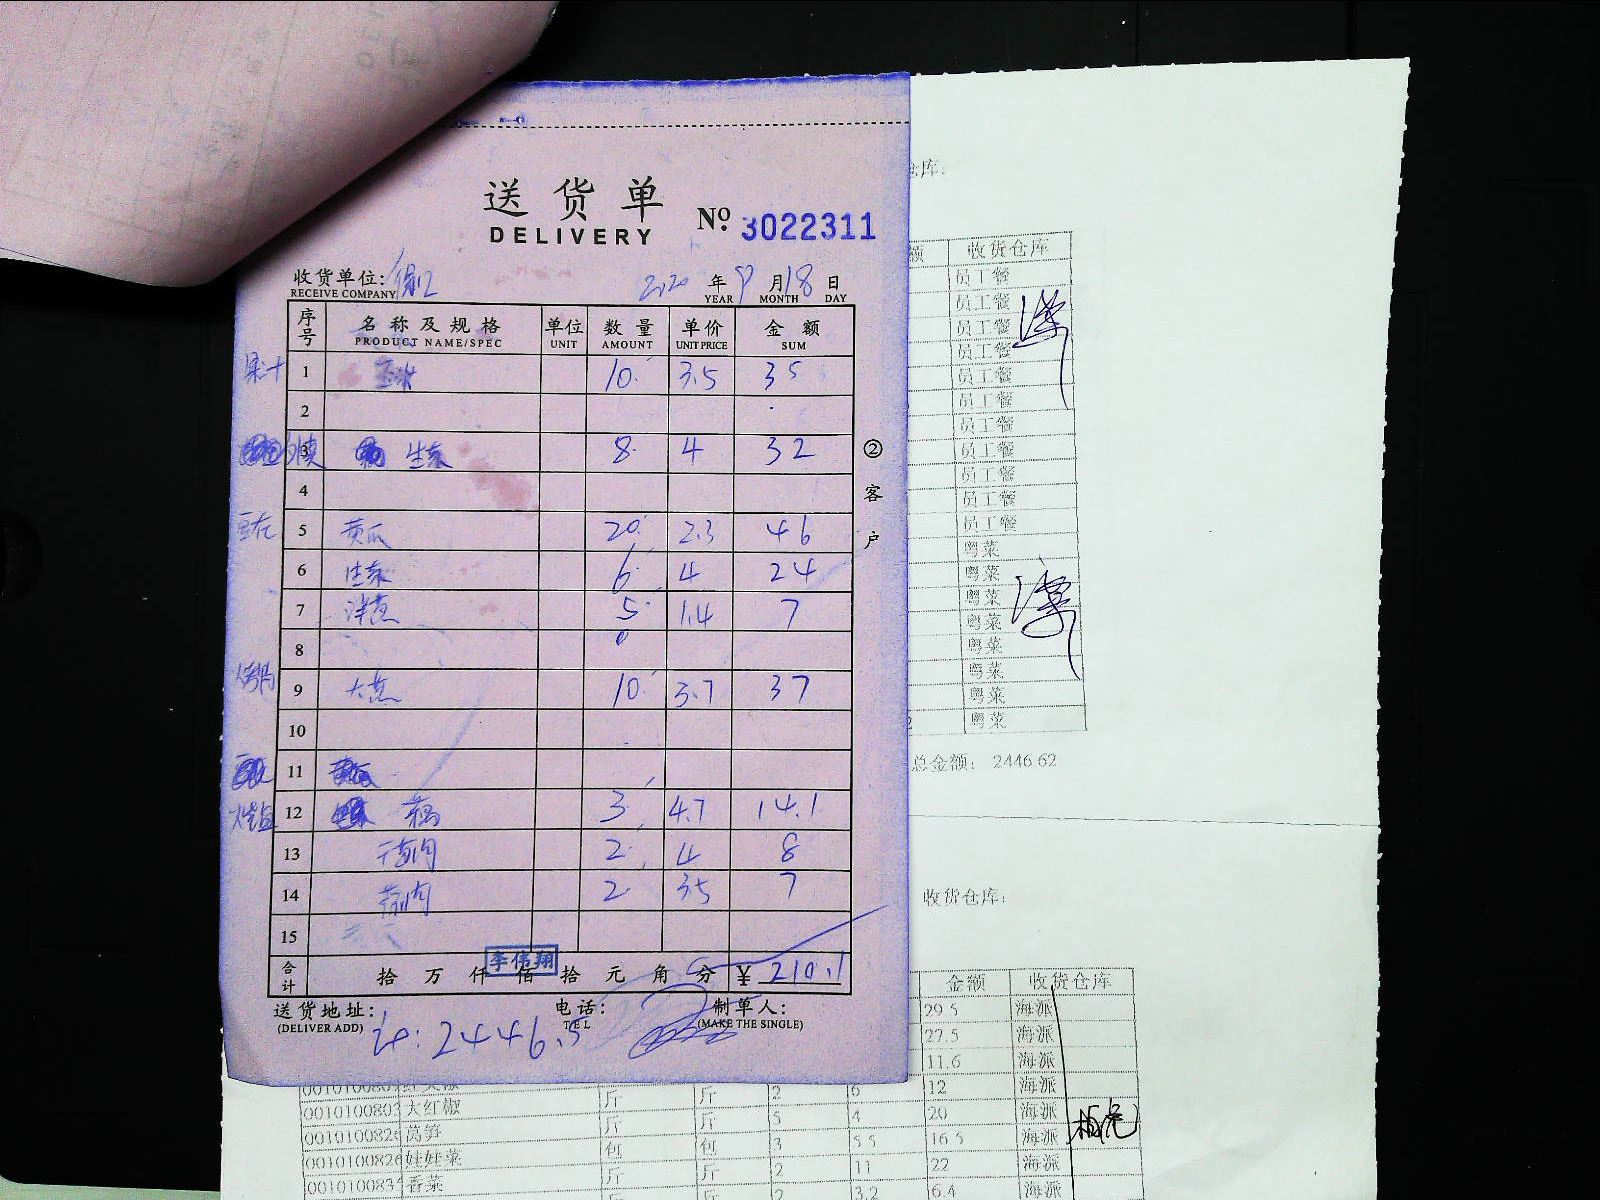 送货单
DELIVERY
No 3022311
收货单位:
RECEIVE COMPANY
2020 年 9 月 18 日
YEAR MONTH DAY
序号 名称及规格 单位 数量 单价 金额
PRODUCT NAME/SPEC UNIT AMOUNT UNIT PRICE SUM
果汁 1 玉米 10 3.5 35
2
3 生菜 8 4 32
4
5 黄瓜 20 2.3 46
6 生菜 6 4 24
7 洋葱 5 1.4 7
8
9 大葱 10 3.7 37
10
11
12 藕 3 4.7 14.1
13 2 4 8
14 2 3.5 7
15
合计 拾万仟佰拾元角分 ¥ 210.1
李伟翔
② 客户
送货地址:
(DELIVER ADD)
电话:
TEL
制单人:
(MAKE THE SINGLE)
计:2446.5
仓库:
额 收货仓库
员工餐
员工餐
员工餐
员工餐
员工餐
员工餐
员工餐
员工餐
员工餐
员工餐
员工餐
粤菜
粤菜
粤菜
粤菜
粤菜
粤菜
粤菜
粤菜
总金额: 2446.62
收货仓库:
金额 收货仓库
29.5 海派
27.5 海派
11.6 海派
2 6 12 海派
大红椒 斤 斤 5 4 20 海派
莴笋 包 包 3 5.5 16.5 海派
娃娃菜 斤 斤 2 11 22 海派
香菜 2 3.2 6.4 海派